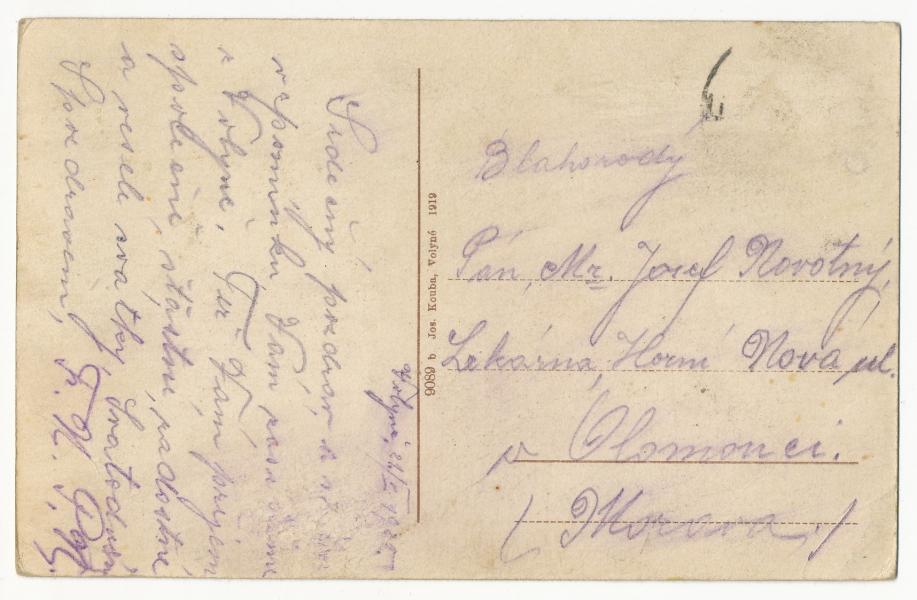 Volyně,
Srdečný pozdrav a
vzpomínku Vám zase
z Volyně. Též Vám přejem
společně šťastné, radostné
a veselé svátky Svatodušní
S pozdravem,
9089 b Jos. Kouba, Volyně 1919
Blahorodý
Pán, Mr. Josef Novotný,
Lékárna, Horní Nová ul.
v Olomouci.
(Morava.)